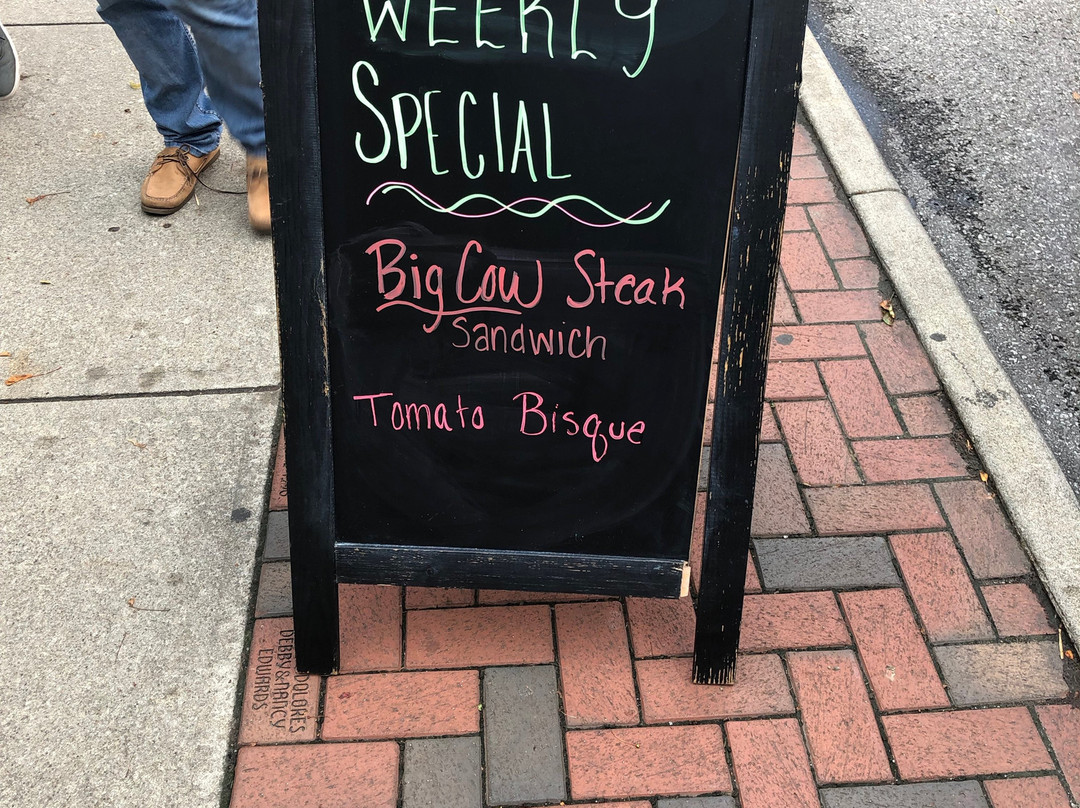 WEEKLY
SPECIAL
Big Cow Steak
Sandwich
Tomato Bisque
DOLORES
DEBBY & NANCY
EDWARDS